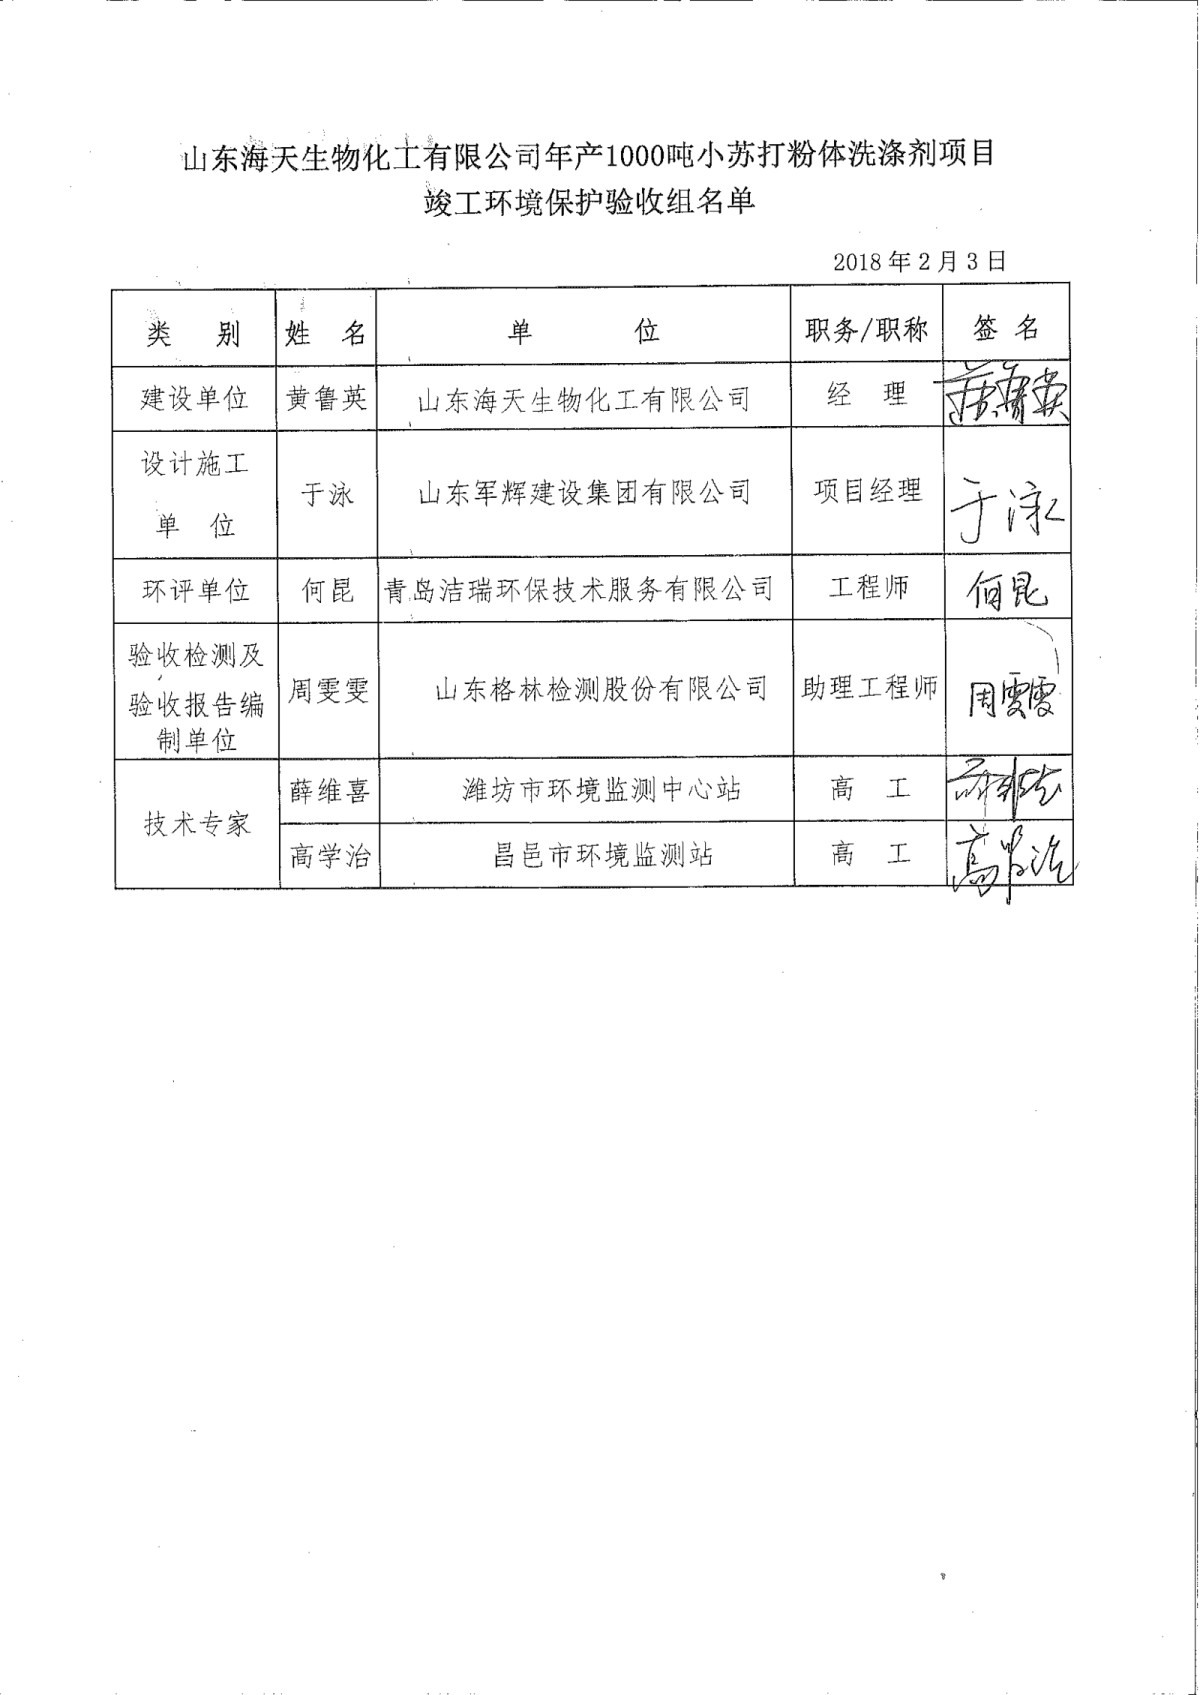 山东海天生物化工有限公司年产1000吨小苏打粉体洗涤剂项目
竣工环境保护验收组名单
2018年2月3日
类 别 姓 名 单 位 职务/职称 签 名
建设单位 黄鲁英 山东海天生物化工有限公司 经 理 黄鲁英
设计施工
单 位 于泳 山东军辉建设集团有限公司 项目经理 于泳
环评单位 何昆 青岛洁瑞环保技术服务有限公司 工程师 何昆
验收检测及
验收报告编
制单位 周雯雯 山东格林检测股份有限公司 助理工程师 周雯雯
技术专家 薛维喜 潍坊市环境监测中心站 高 工
高学治 昌邑市环境监测站 高 工 高学治